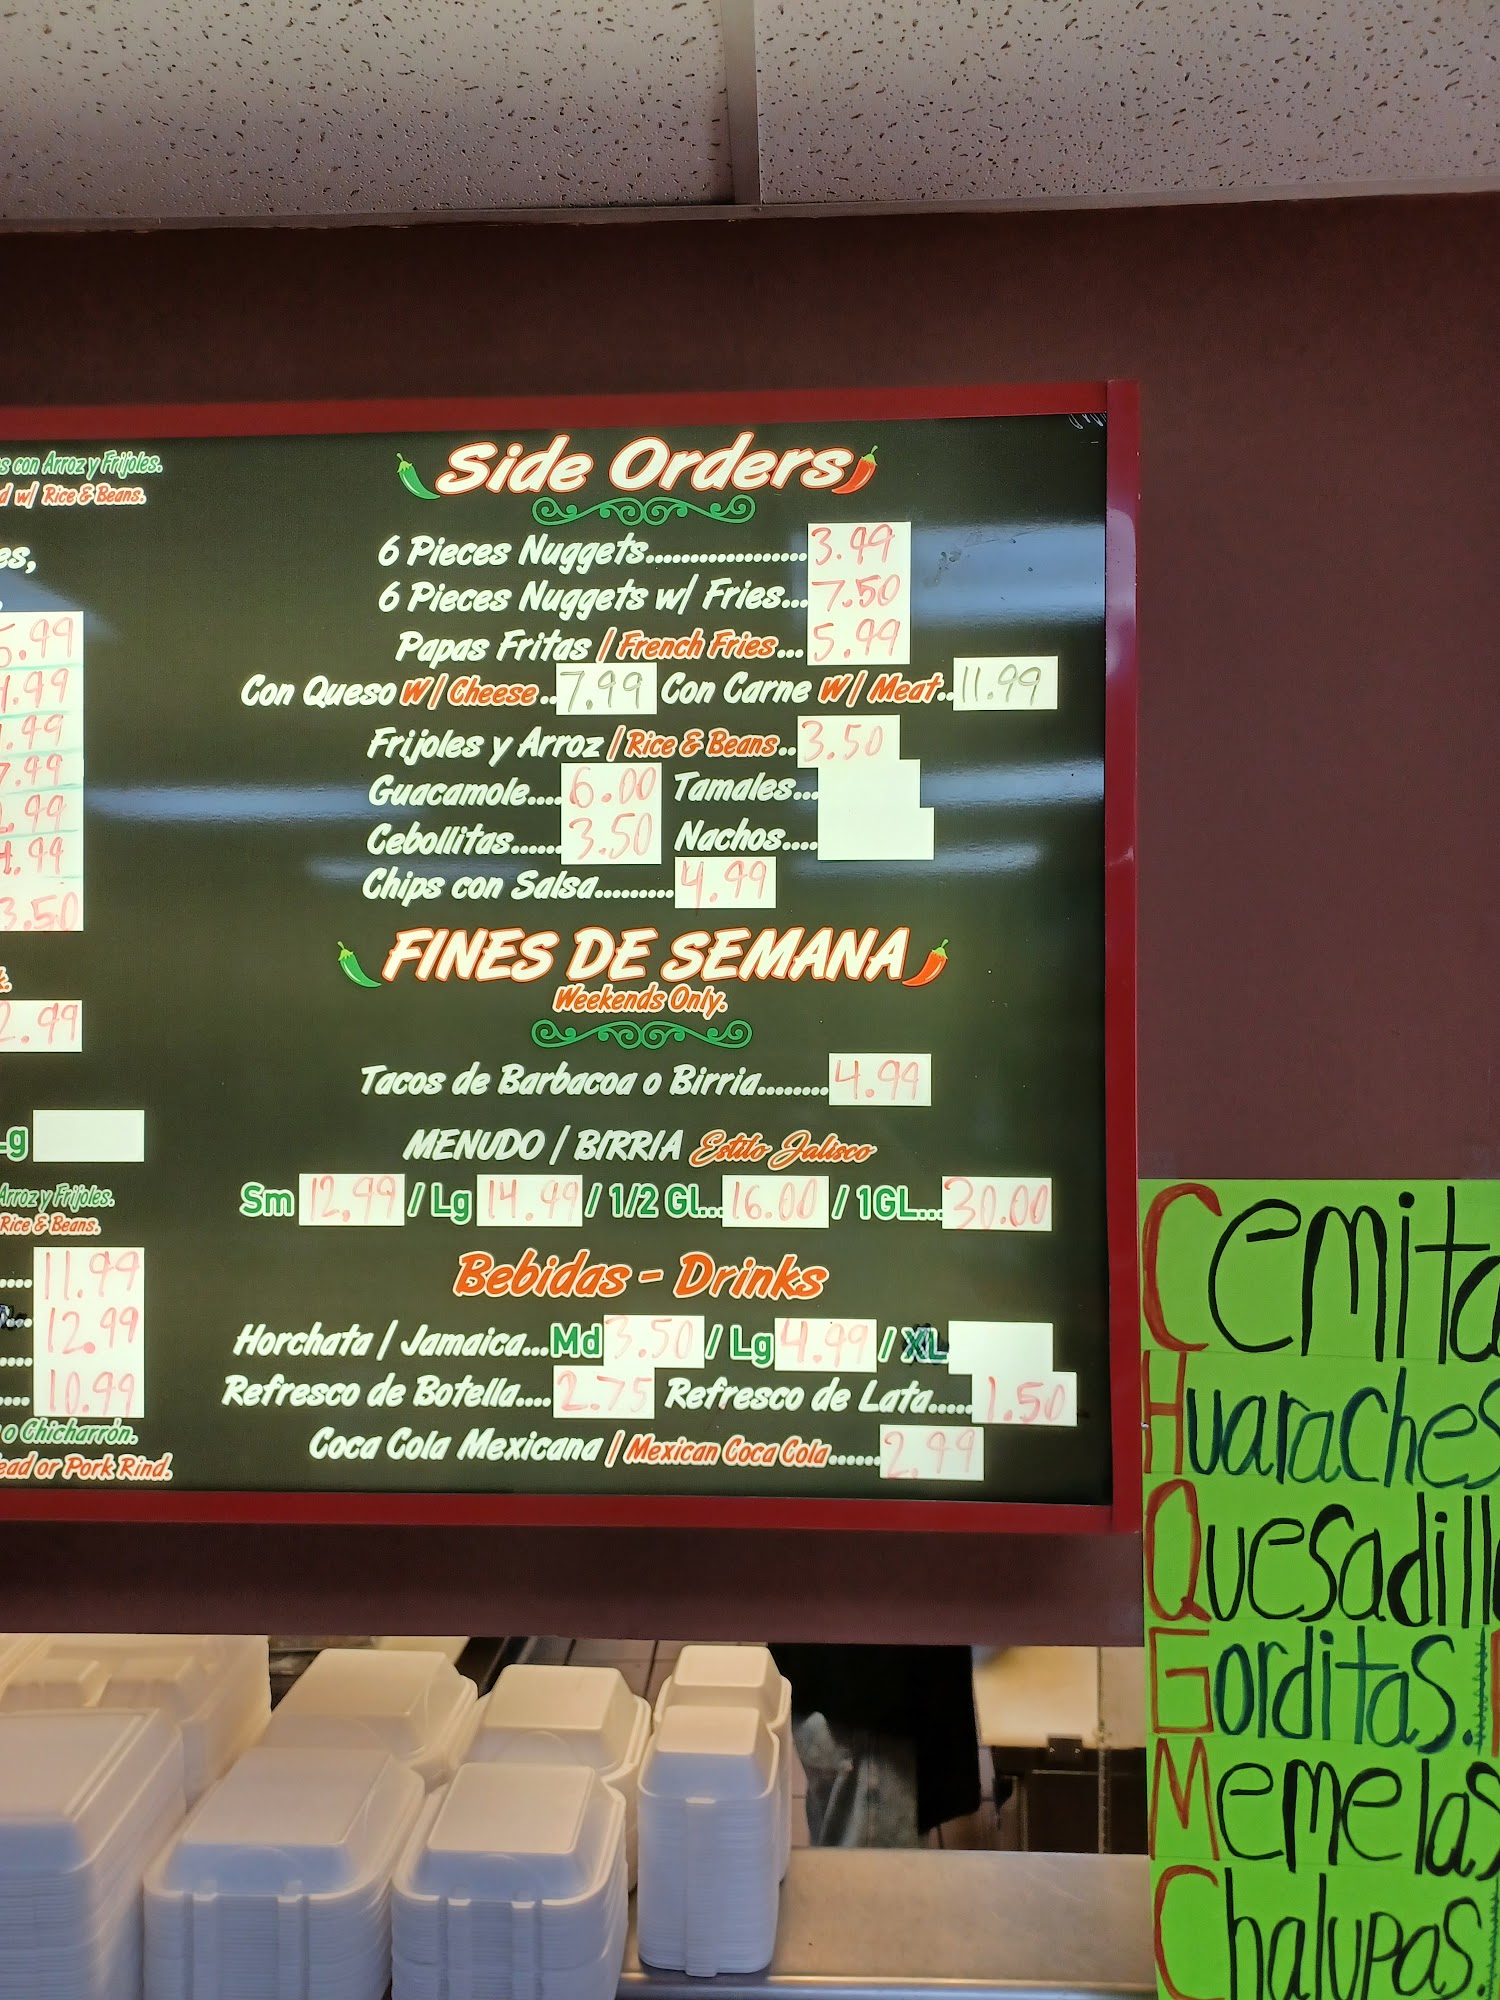 s con Arroz y Frijoles.
d w/ Rice & Beans.
es,
5.99
.99
.99
7.99
.99
4.99
3.50
2.99
Lg
Arroz y Frijoles.
Rice & Beans.
.... 11.99
... 12.99
.... 
.... 10.99
o Chicharrón.
ead or Pork Rind.
Side Orders
6 Pieces Nuggets................... 3.99
6 Pieces Nuggets w/ Fries... 7.50
Papas Fritas / French Fries... 5.99
Con Queso W/ Cheese.. 7.99 Con Carne W/ Meat.. 11.99
Frijoles y Arroz / Rice & Beans.. 3.50
Guacamole.... 6.00 Tamales...
Cebollitas...... 3.50 Nachos....
Chips con Salsa......... 4.99
FINES DE SEMANA
Weekends Only.
Tacos de Barbacoa o Birria........ 4.99
MENUDO / BIRRIA Estilo Jalisco
Sm 12.99 / Lg 14.99 / 1/2 GL... 16.00 / 1GL... 30.00
Bebidas - Drinks
Horchata / Jamaica... Md 3.50 / Lg 4.99 / XL
Refresco de Botella.... 2.75 Refresco de Lata..... 1.50
Coca Cola Mexicana / Mexican Coca Cola...... 2.99
Cemita
Huaraches
Quesadill
Gorditas.
Memelas
Chalupas.